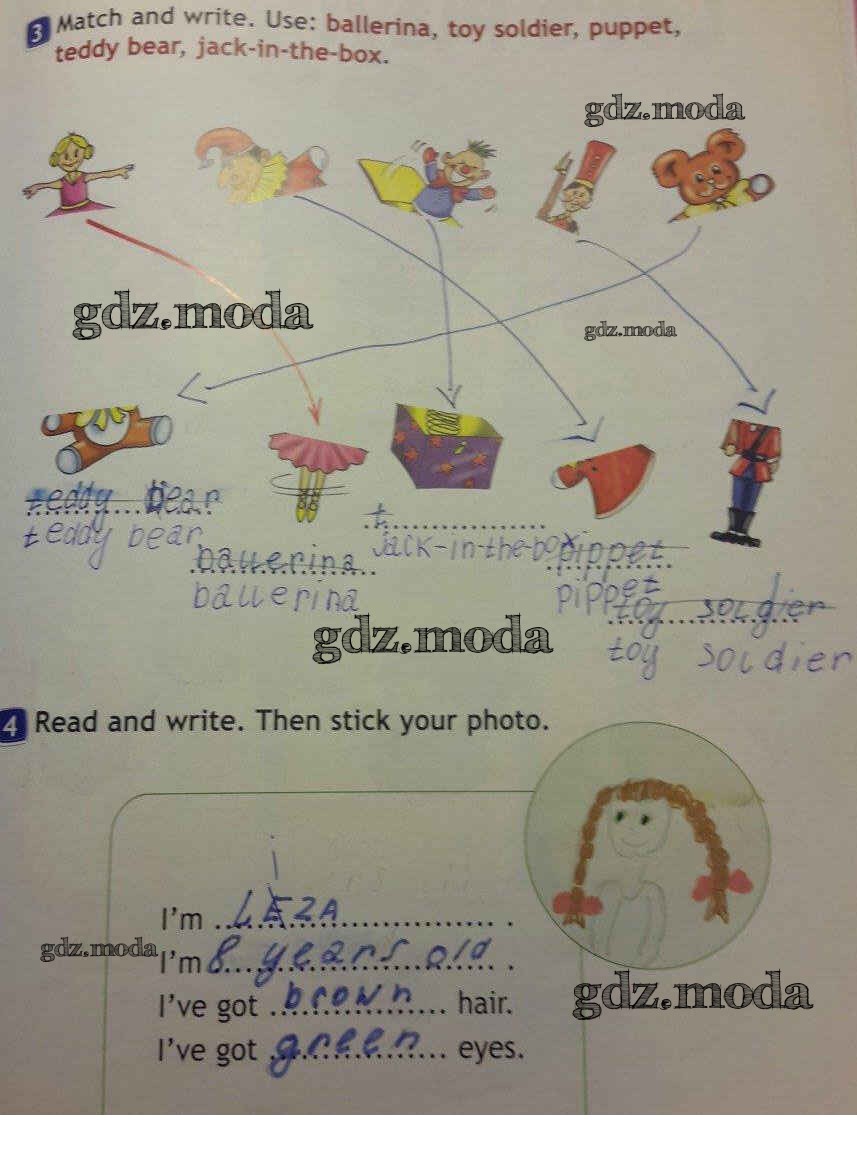 3 Match and write. Use: ballerina, toy soldier, puppet,
teddy bear, jack-in-the-box.
gdz.moda
gdz.moda
gdz.moda
teddy bear
teddy bear
t
jack-in-the-box
pippet
bauerina
bauerina
pippet
toy soldier
gdz.moda
toy soldier
4 Read and write. Then stick your photo.
i
I'm LEZA .
gdz.moda
I'm 8 years old .
gdz.moda
I've got brown hair.
I've got green eyes.